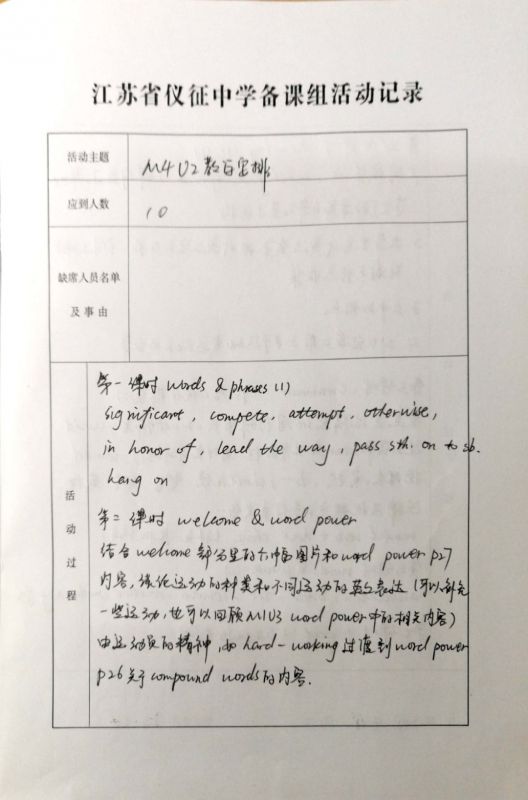 江苏省仪征中学备课组活动记录
活动主题
M4U2教学安排
应到人数
10
缺席人员名单
及事由
活动过程
第一课时 words & phrases (1)
significant, compete, attempt, otherwise,
in honor of, lead the way, pass sth. on to sb.
hang on
第二课时 welcome & word power
结合welcome部分里的六幅图片和word power P27
内容,谈论运动的种类和不同运动的英文表达(可以补充
一些运动,也可以回顾M1U3 word power中的相关内容)
由运动员的精神,如hard-working过渡到word power
P26关于compound words的内容.